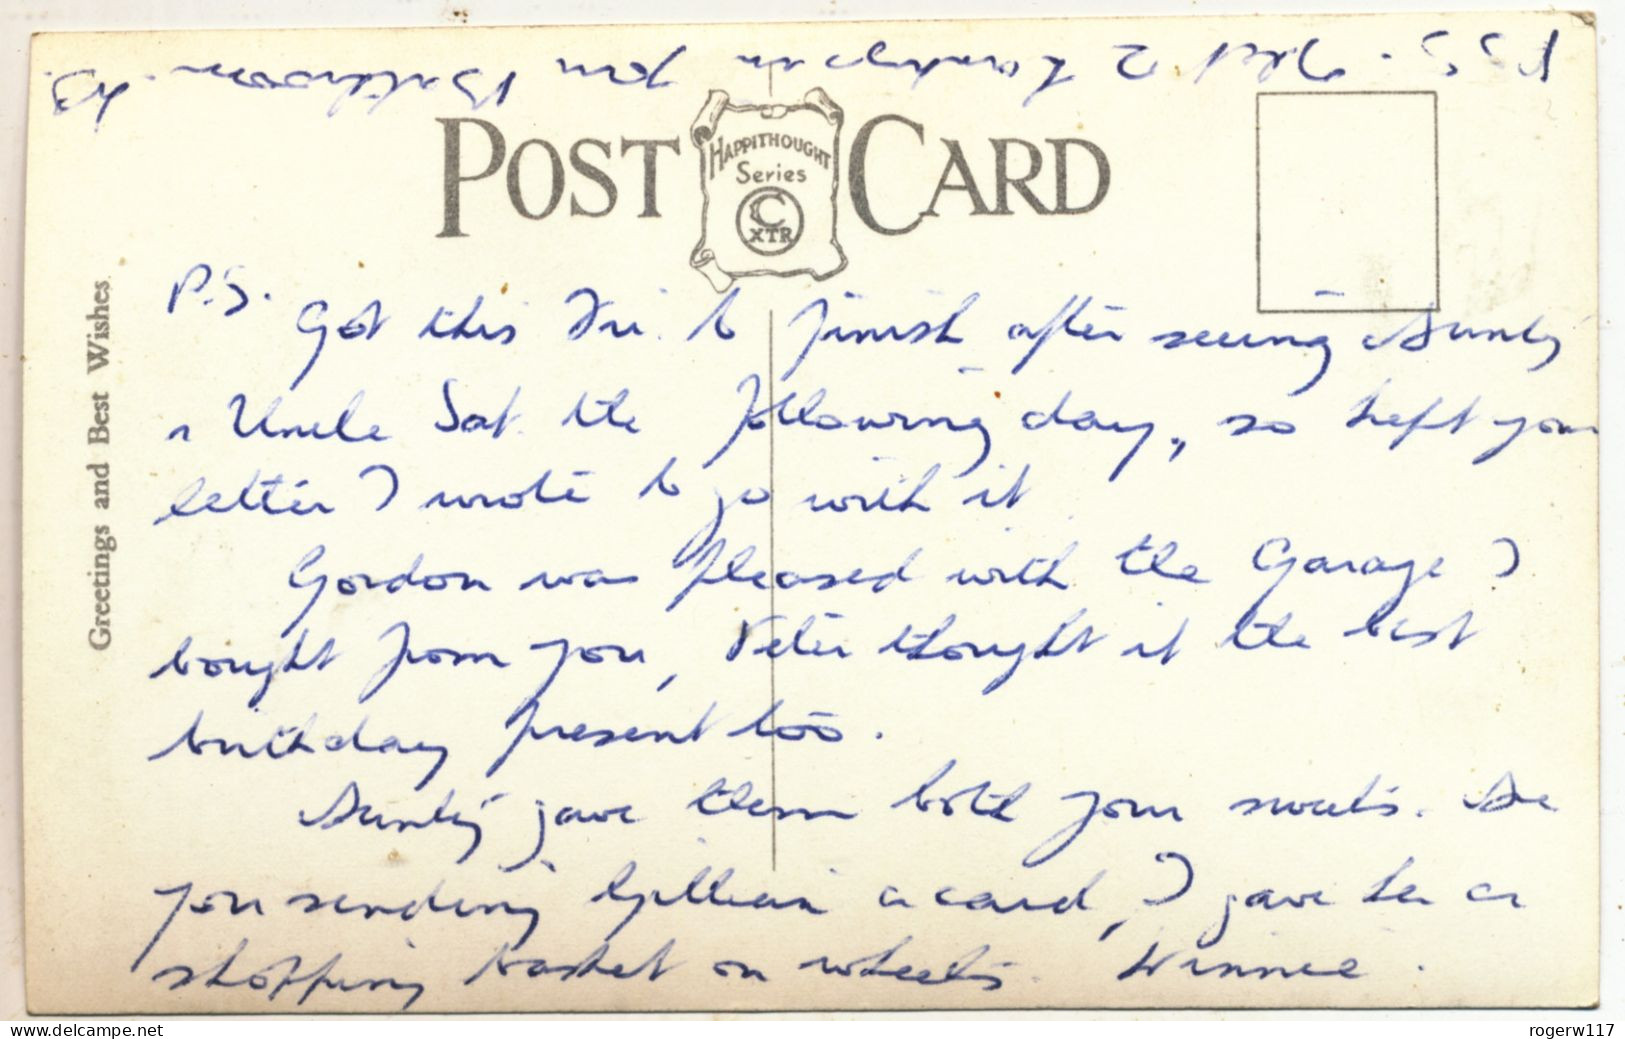 POST CARD
HAPPITHOUGHT
Series
C
XTR
Greetings and Best Wishes
P.S.
Got this Fri. to finish after seeing Aunty
& Uncle Sat. the following day, so kept your
letter I wrote to go with it
Gordon was pleased with the Garage I
bought from you, Peter thought it the best
birthday present too.
Aunty gave them both your sweets. Are
you sending Gillian a card, I gave her a
shopping basket on wheels. Winnie.
P.S.S. 2 in your Bathroom.
rogerw117
delcampe.net